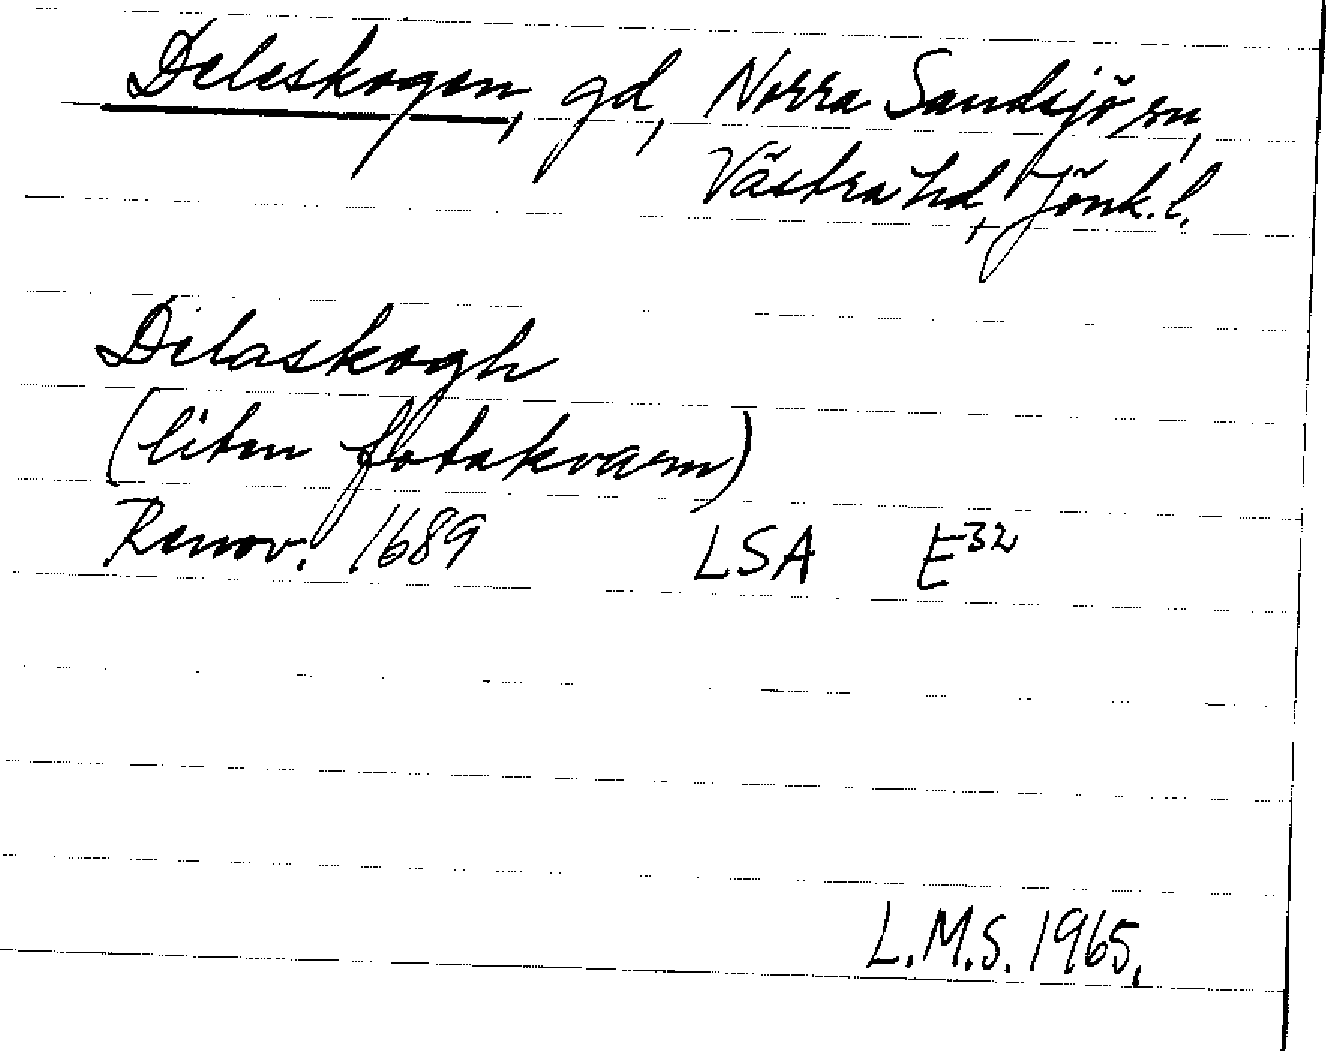 Deleskogen, gd, Norra Sandsjö sn,
Västra hd, Jönk. l.
Dilaskogh
(liten fotakvarn)
Renov. 1689 LSA E32
L.M.S. 1965.